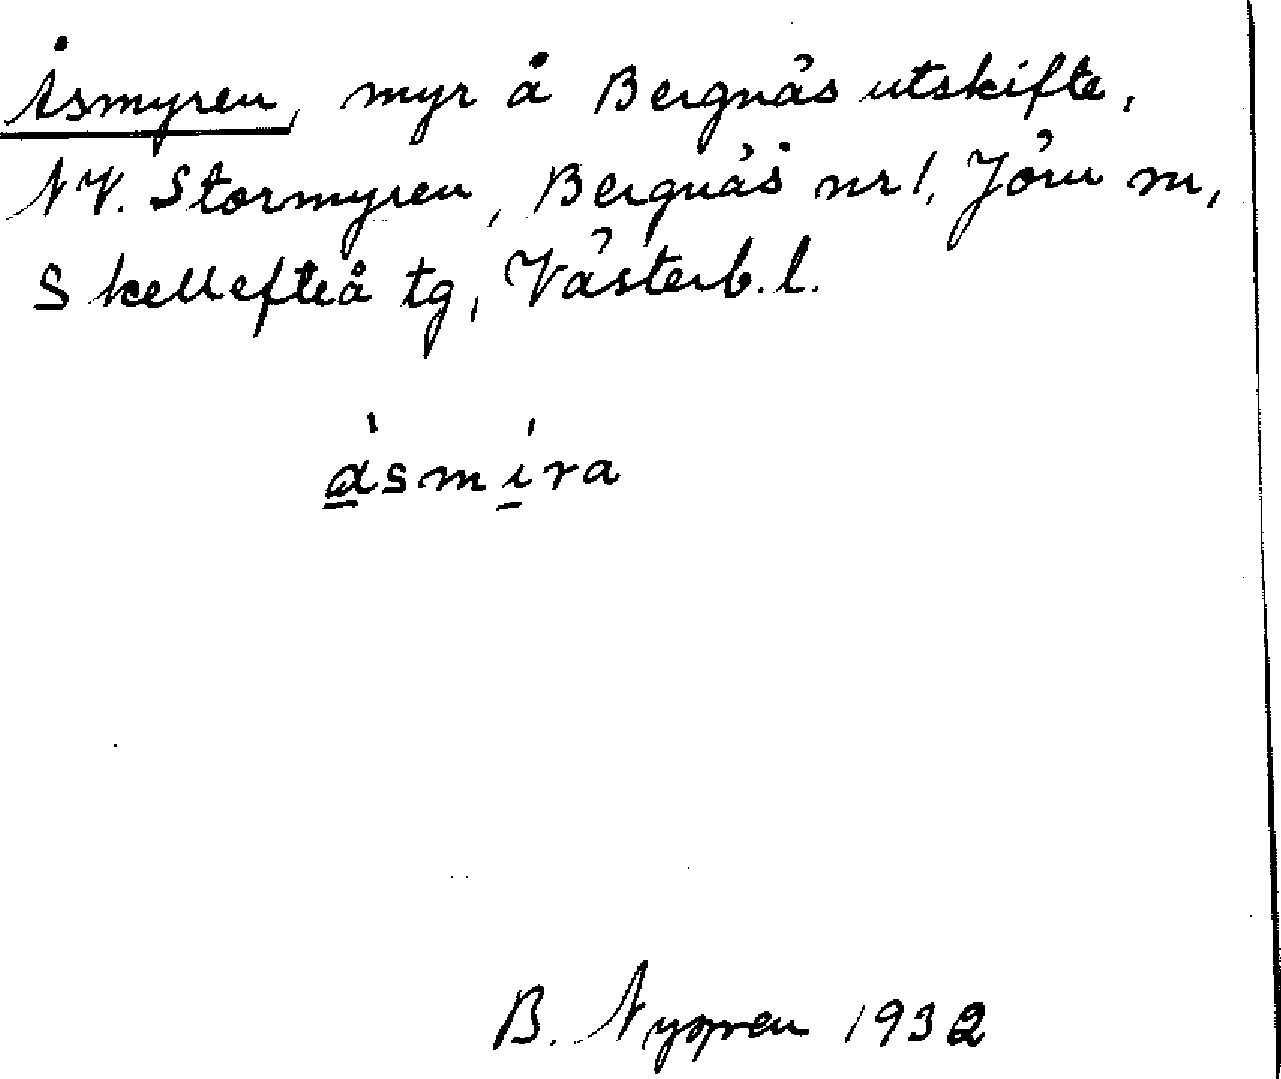 Åsmyren, myr å Bergnäs utskifte,
NV. Stormyren, Bergnäs nr 1, Jörn sn,
Skellefteå tg, Västerb. l.
åsmira
B. 1932